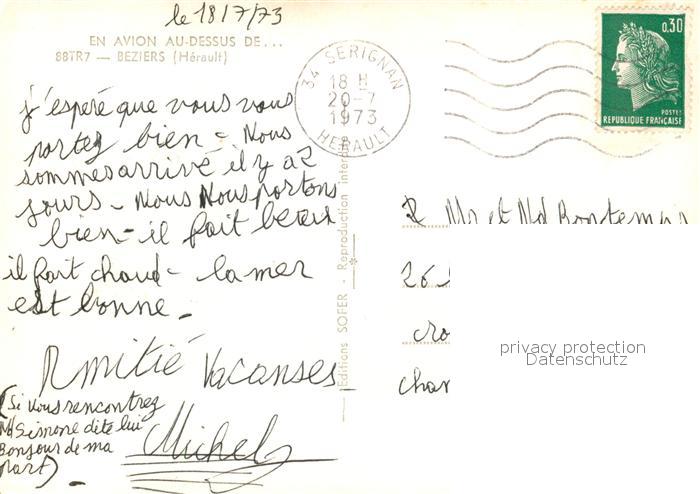 le 18/7/73
EN AVION AU-DESSUS DE...
88TR7 — BEZIERS (Hérault)
34 SERIGNAN
18 H
20-7
1973
HERAULT
0,30
POSTES
REPUBLIQUE FRANÇAISE
j'espère que vous vous
portez bien - Nous
sommes arrivé il y a 2
jours - Nous Nous portons
bien - il fait beau
il fait chaud - la mer
est bonne -
Amitié Vacanses
(Si vous rencontrez
Md Simone dite lui
Bonjour de ma
part) -
Michel
Editions SOFER - Reproduction interdite
Mr et Md Bontemps
26
privacy protection
Datenschutz